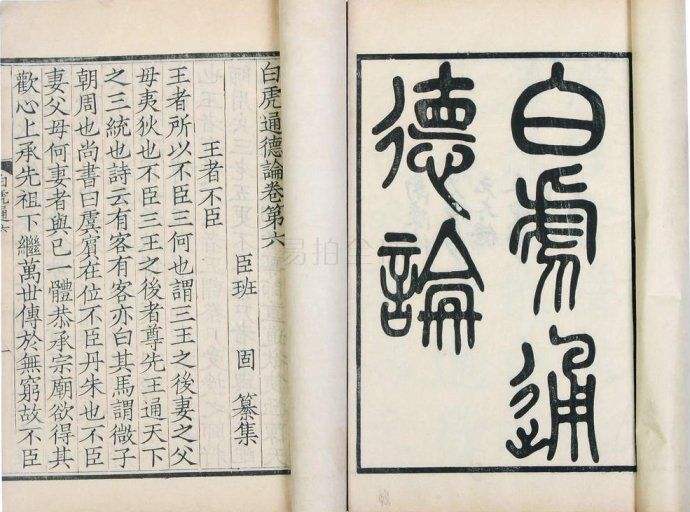 白虎通
德論
白虎通德論卷第六
臣班 固 纂集
王者不臣
王者所以不臣三何也謂三王之後妻之父
母夷狄也不臣三王之後者尊先王通天下
之三統也詩云有客有客亦白其馬謂微子
朝周也尚書曰虞賓在位不臣丹朱也不臣
妻父母何妻者與已一體恭承宗廟欲得其
歡心上承先祖下繼萬世傳於無窮故不臣
白虎通六
一